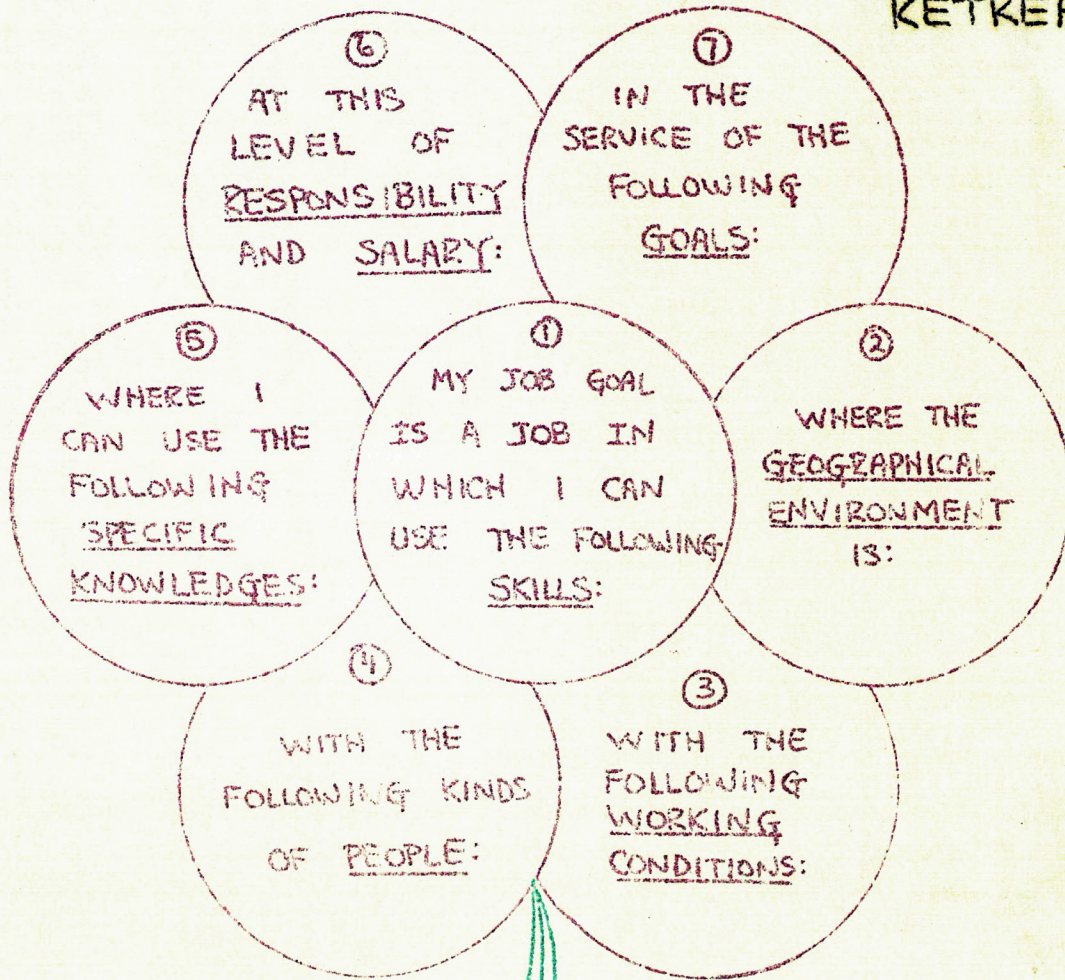 KETKER
⑥
AT THIS
LEVEL OF
RESPONSIBILITY
AND SALARY:
⑦
IN THE
SERVICE OF THE
FOLLOWING
GOALS:
⑤
WHERE I
CAN USE THE
FOLLOWING
SPECIFIC
KNOWLEDGES:
①
MY JOB GOAL
IS A JOB IN
WHICH I CAN
USE THE FOLLOWING
SKILLS:
②
WHERE THE
GEOGRAPHICAL
ENVIRONMENT
IS:
④
WITH THE
FOLLOWING KINDS
OF PEOPLE:
③
WITH THE
FOLLOWING
WORKING
CONDITIONS: